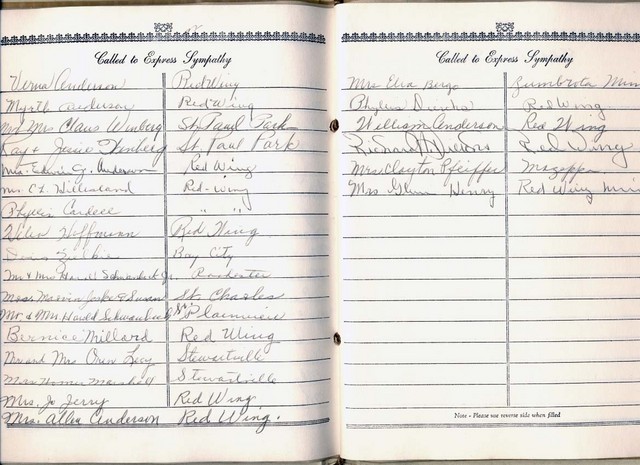 Called to Express Sympathy
Verna Anderson Red Wing
Myrtle Anderson Red Wing
Mr & Mrs Claus Wenberg St. Paul Park
Ray & Wenberg St Paul Park
Mrs. Edwin G. Anderson Red Wing
Mrs. C.L. Red-Wing
Phyllis " "
Helen Hoffmann Red Wing
Bay City
Mr & Mrs Harold Jr. Rochester
Mrs. Marvin & Susan St. Charles
Mr. & Mrs Harold Plainview
Bernice Millard Red Wing
Mr and Mrs Orvin Stewartville
Mrs Homer Marshall Stewartville
Mrs. Jo Jerry Red Wing
Mrs. Allen Anderson Red Wing.
Called to Express Sympathy
Mrs Elra Zumbrota Minn
Phyllis Red Wing
William Anderson Red Wing
Richard Red Wing
Mrs. Clayton Pfeiffer Mazeppa
Mrs Glenn Henry Red Wing Minn
Note - Please use reverse side when filled